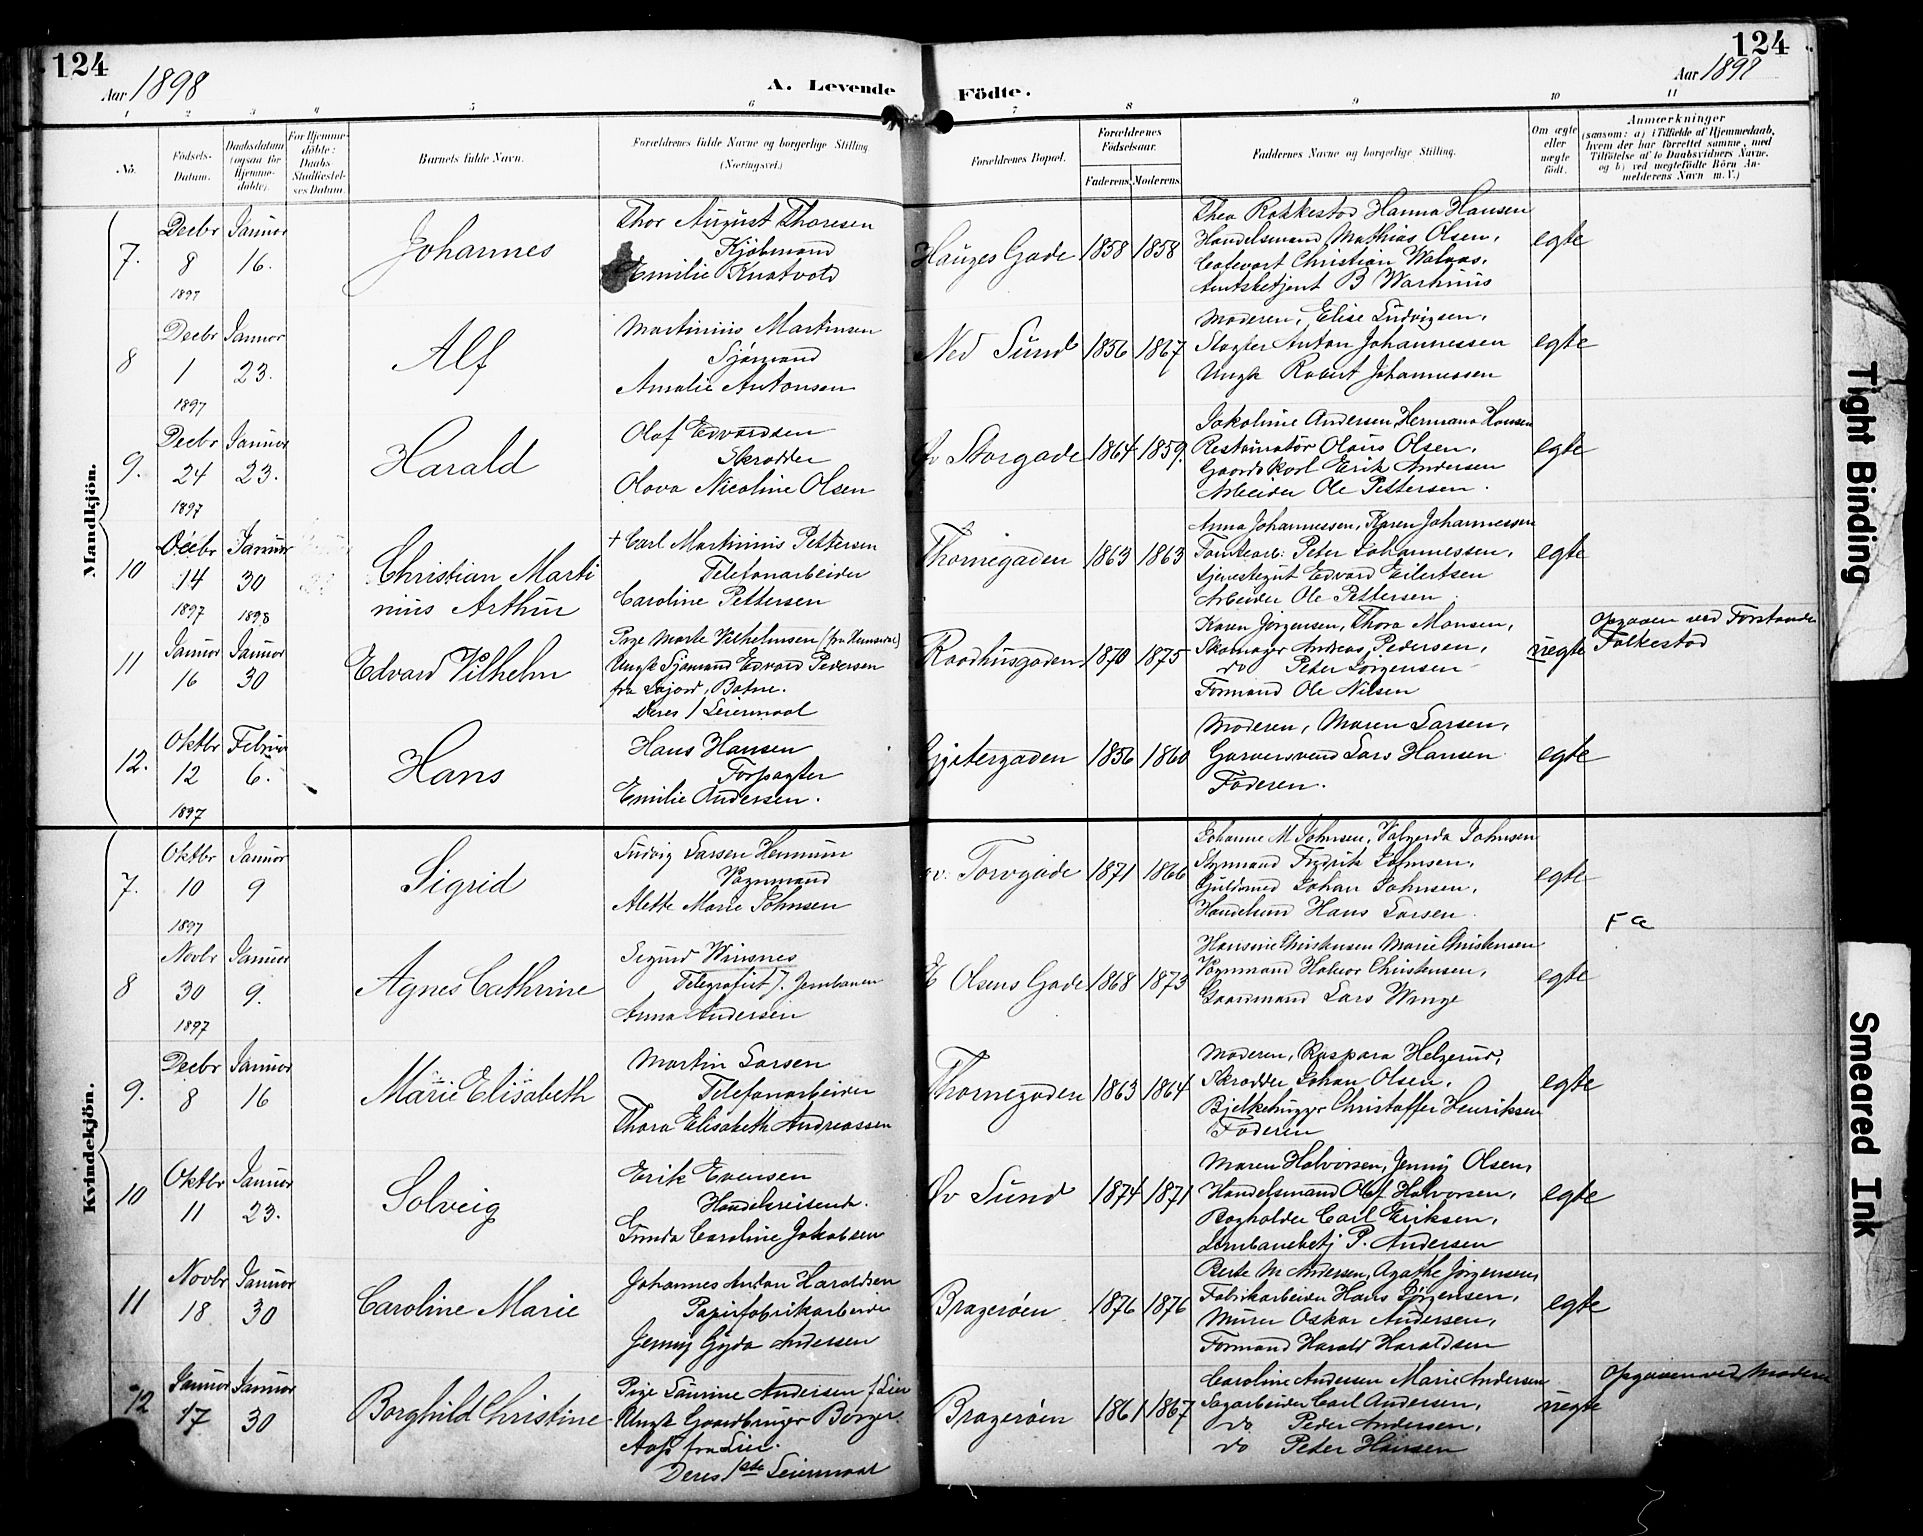 124
Aar 1898
A. Levende
1 2 3 4 5 6
No.
Födsels-Datum.
Daabsdatum (ogsaa for Hjemme-döbte).
For Hjemme-döbte: Daabs Stadfæstel-ses Datum.
Barnets fulde Navn.
Forældrenes fulde Navne og borgerlige Stilling. (Næringsvei.)
Mandkjön.
7. Decbr 8 1897 Januar 16. Johannes
Thor August Thoresen
Kjöbmand
Emilie Knatvold
8 Decbr 1 1897 Januar 23. Alf
Martinius Martinsen
Sjömand
Amalie Antonsen
9. Decbr 24 1897 Januar 23. Harald
Olaf Edvardsen
Skrædder
Olava Nicoline Olsen
10 Decbr 14 1897 Januar 30 1898 Christian Marti
nius Arthur
+ Carl Martinius Pettersen
Telefonarbeider
Caroline Pettersen
11 Januar 16 Januar 30 Edvard Vilhelm
Pige Marte Vilhelmsen (fra Hemsedal)
Ungk Sjömand Edvard Pedersen
fra , Botne.
Deres 1 Leiermaal
12. Oktbr 12 1897 Februar 6. Hans
Hans Hansen
Forpagter
Emilie Andersen.
Kvindekjön.
7. Oktbr 10 1897 Januar 9 Sigrid
Ludvig Larsen Hennum
Vognmand
Alette Marie Johnsen
8 Novbr 30 1897 Januar 9. Agnes Cathrine
Sigurd Winsnes
Telegrafist v. Jernbanen
Anna Andersen
9. Decbr 8 Januar 16 Marie Elisabeth
Martin Larsen
Telefonarbeider
Thora Elisabeth Andreassen
10 Oktbr 11 Januar 23. Solveig
Erik Evensen
Handelsreisende.
Gunda Caroline Jakobsen
11 Novbr 18 Januar 30 Caroline Marie
Johannes Anton Haraldsen
Papirfabrikarbeider
Jenny Gyda Andersen
12 Januar 17 Januar 30 Borghild Christine
Pige Laurine Andersen f Lier
Ungk Gaardbruger Börger
fra Lier.
Deres 1ste Leiermaal
124
Aar 1898
Födte.
7 8 9 10 11
Forældrenes Bopæl.
Forældrenes Födselsaar.
Faderens. Moderens.
Faddernes Navne og borgerlige Stilling.
Om ægte eller uægte födt.
Anmærkninger
(saasom: a) i Tilfælde af Hjemmedaab, hvem der har forrettet samme, med Tilföielse af to Daabsvidners Navne. og b) ved uægtefödte Börn An-melderens Navn m. V.)
Hauges Gade 1858 1858
Thea Rakkestad Hanna Hansen
Handelsmand Mathias Olsen,
Christian
Amtsbetjent B
egte
Ned Sund 1856 1867
Moderen, Elise Ludvigsen,
Slagter Anton Johannessen
Ungk Robert Johannessen
egte
Öv Storgade 1864 1859.
Jakobine Andersen Hermana Hansen
Restauratör Olaus Olsen,
Gaardskarl Erik Andersen
Arbeider Ole Pettersen.
egte
Thornegaden 1863 1863
Anna Johannessen, Karen Johannessen
Peter Johannessen,
Tjenestegut Edvard Eilertsen
Arbeider Ole Pettersen.
egte
Raadhusgaden 1870 1875
Karen Jörgensen, Thora Monsen,
Skomager Andreas Pedersen,
do Peter Jörgensen
Formand Ole Nilsen
uegte
Opgaven ved Forstander
Falkestad
Gjetergaden 1856 1860
Moderen, Maren Larsen,
Garversvend Lars Hansen
Faderen.
egte
öv. Torvgade 1871 1866
Johanne M Johnsen, Valgerda Johnsen
Styrmand Fredrik Johnsen,
Guldsmed Johan Johnsen,
Handelsmd Hans Larsen.
egte
F a
E Olsens Gade 1868 1873
Hansine Christensen Marie Christensen
Vognmand Halvor Christensen,
Gaardmand Lars Winge
egte
Thornegaden 1863 1864
Moderen, Kaspara Helgerud,
Skrædder Johan Olsen,
Bjelkehugger Christoffer Henriksen
Faderen
egte
Öv Sund 1874 1871
Maren Halvorsen, Jenny Olsen,
Handelsmand Olaf Halvorsen,
Bogholder Carl Eriksen,
Jernbanebetj P. Andersen
egte
Brageröen 1876 1876
Berte M Andersen, Agathe Jörgensen,
Fabrikarbeider Hans Jörgensen,
Murer Oskar Andersen,
Formand Harald Haraldsen
egte
Brageröen 1861 1867
Caroline Andersen Marie Andersen
Sagarbeider Carl Andersen,
do Peder Andersen,
do Peter Hansen
uegte
Opgaven ved Moderen
Tight Binding
Smeared Ink